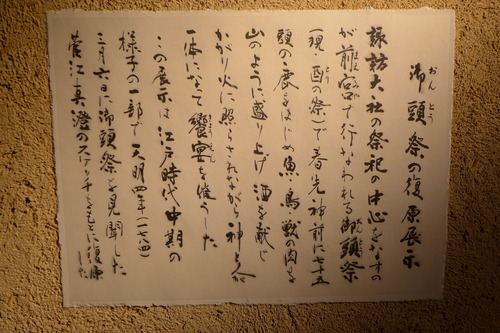 御頭祭の復原展示
おんとう
諏訪大社の祭祀の中心をなすの
が前宮で行なわれる御頭祭
(現 酉の祭)で春先神前に七十五
頭の鹿をはじめ魚・鳥・獣の肉を
山のように盛り上げ 酒を献じ
かがり火に照らされながら神と人が
一体になって饗宴を催うした
この展示は江戸時代中期の
様子の一部で天明四年(一七八四)
三月六日に御頭祭を見聞した
菅江真澄のスケッチをもとに復原した